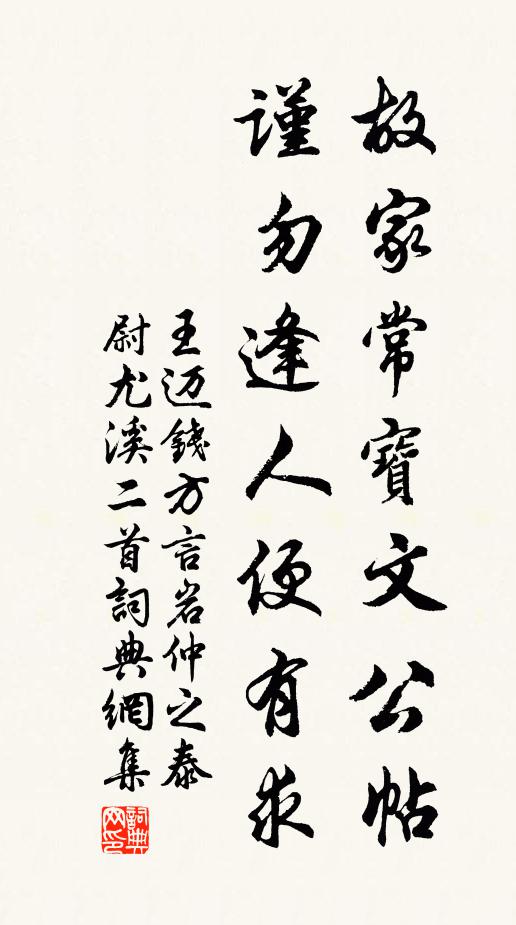 故家常寶文公帖
謹勿逢人便有求
王迈錢方言岩仲之泰
尉尤溪二首詞典網集
詞典网印